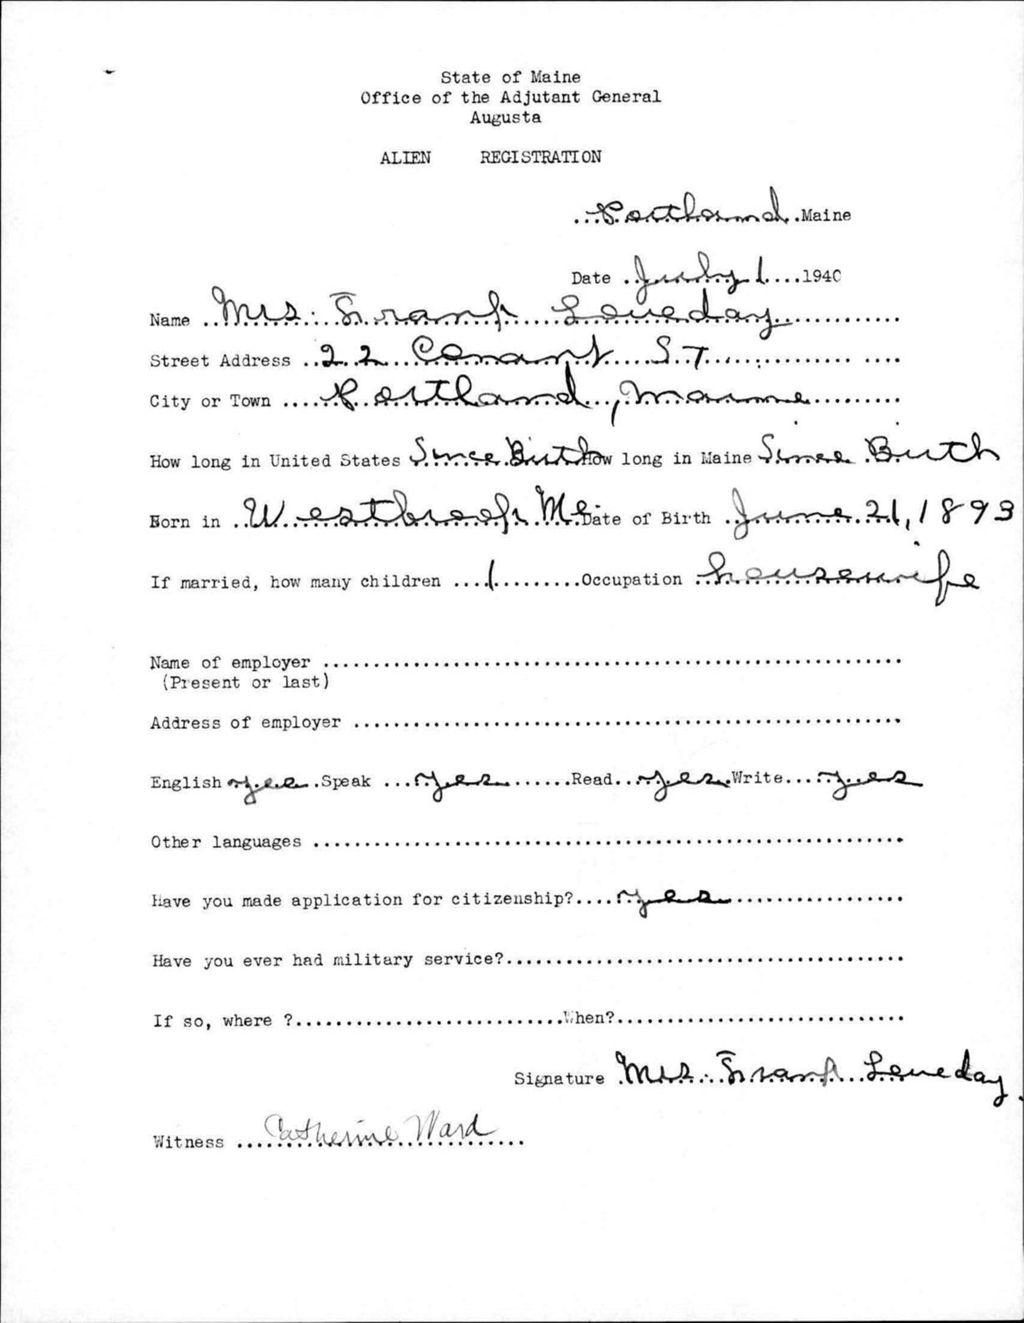 State of Maine
Office of the Adjutant General
Augusta
ALIEN REGISTRATION
Portland Maine
Date July 1 1940
Name Mrs. Frank Loveday
Street Address 22 Conant St
City or Town Portland, Maine
How long in United States Since Birth How long in Maine Since Birth
Born in Westbrook Me Date of Birth June 21, 1893
If married, how many children 1 Occupation housewife
Name of employer
(Present or last)
Address of employer
English yes Speak yes Read yes Write yes
Other languages
Have you made application for citizenship? yes
Have you ever had military service?
If so, where ? When?
Signature Mrs. Frank Loveday
Witness Catherine Ward